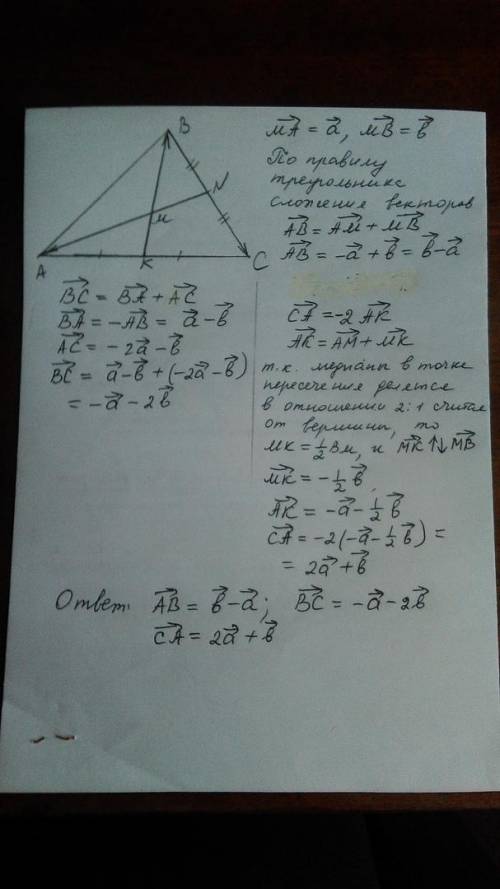 B
N
M
A
K
C
M⃗A = a⃗, M⃗B = b⃗
По правилу
треугольника
сложения векторов
A⃗B = A⃗M + M⃗B
A⃗B = -a⃗ + b⃗ = b⃗ - a⃗
B⃗C = B⃗A + A⃗C
B⃗A = -A⃗B = a⃗ - b⃗
A⃗C = -2a⃗ - b⃗
B⃗C = a⃗ - b⃗ + (-2a⃗ - b⃗)
= -a⃗ - 2b⃗
C⃗A = -2A⃗K
A⃗K = A⃗M + M⃗K
т.к. медианы в точке
пересечения делятся
в отношении 2:1 считая
от вершины, то
MK = 1/2 BM, и M⃗K ↑↓ M⃗B
M⃗K = -1/2 b⃗
A⃗K = -a⃗ - 1/2 b⃗
C⃗A = -2(-a⃗ - 1/2 b⃗) =
= 2a⃗ + b⃗
Ответ: A⃗B = b⃗ - a⃗; B⃗C = -a⃗ - 2b⃗
C⃗A = 2a⃗ + b⃗